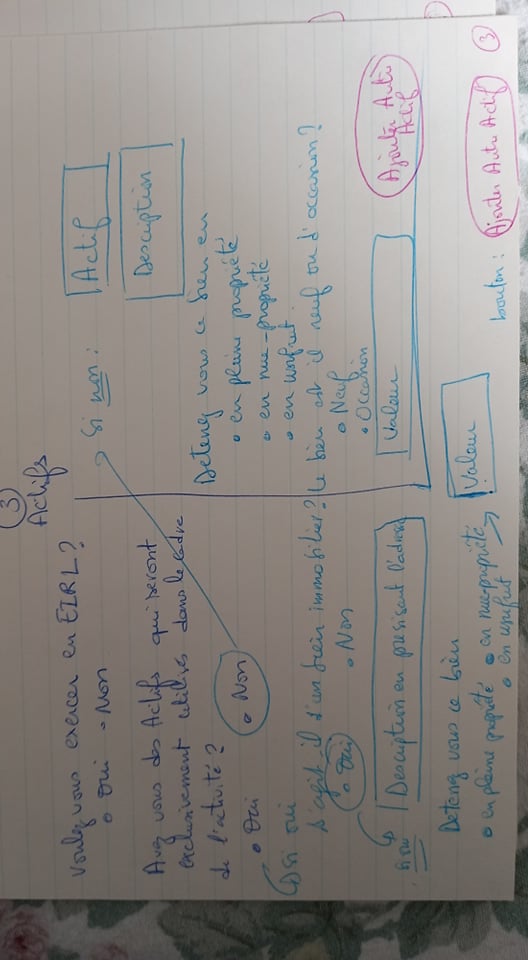 ③
Actifs
Voulez vous exercer en EIRL ?
• Oui • Non
Avez vous des Actifs qui seront
exclusivement utilisés dans le cadre
de l'activité ?
• Oui • Non
Si oui
s'agit il d'un bien immobilier ?
• Oui • Non
Si oui
Description en précisant l'adresse
Detenez vous ce bien
• en pleine propriété • en nue-propriété
• en usufruit
Valeur
bouton : Ajouter Autre Actif
Si non :
Actif
Description
Detenez vous ce bien en
• en pleine propriété
• en nue-propriété
• en usufruit
Le bien est il neuf ou d'occasion ?
• Neuf
• Occasion
Valeur
Ajouter Autre
Actif
③